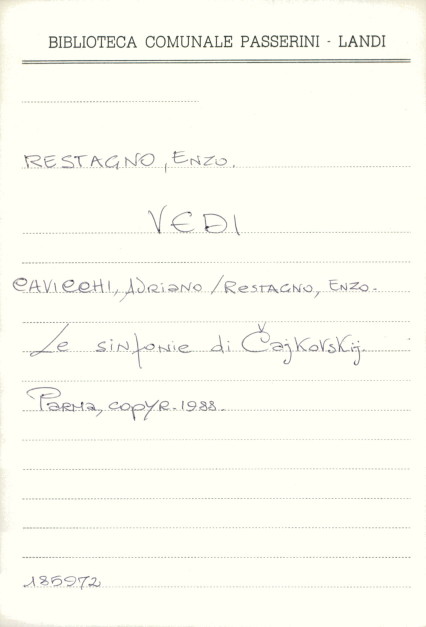 BIBLIOTECA COMUNALE PASSERINI - LANDI
RESTAGNO, ENZO.
VEDI
CAVICCHI, ADRIANO / RESTAGNO, ENZO.
Le sinfonie di Čajkovskij.
PARMA, COPYR. 1988.
185972